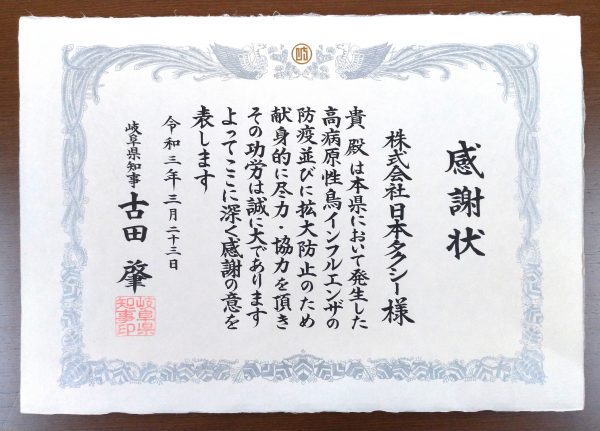 岐
感謝状
株式会社日本タクシー様
貴殿は本県において発生した
高病原性鳥インフルエンザの
防疫並びに拡大防止のため
献身的に尽力・協力を頂き
その功労は誠に大であります
よってここに深く感謝の意を
表します
令和三年三月二十三日
岐阜県知事 古田肇
岐阜県
知事印